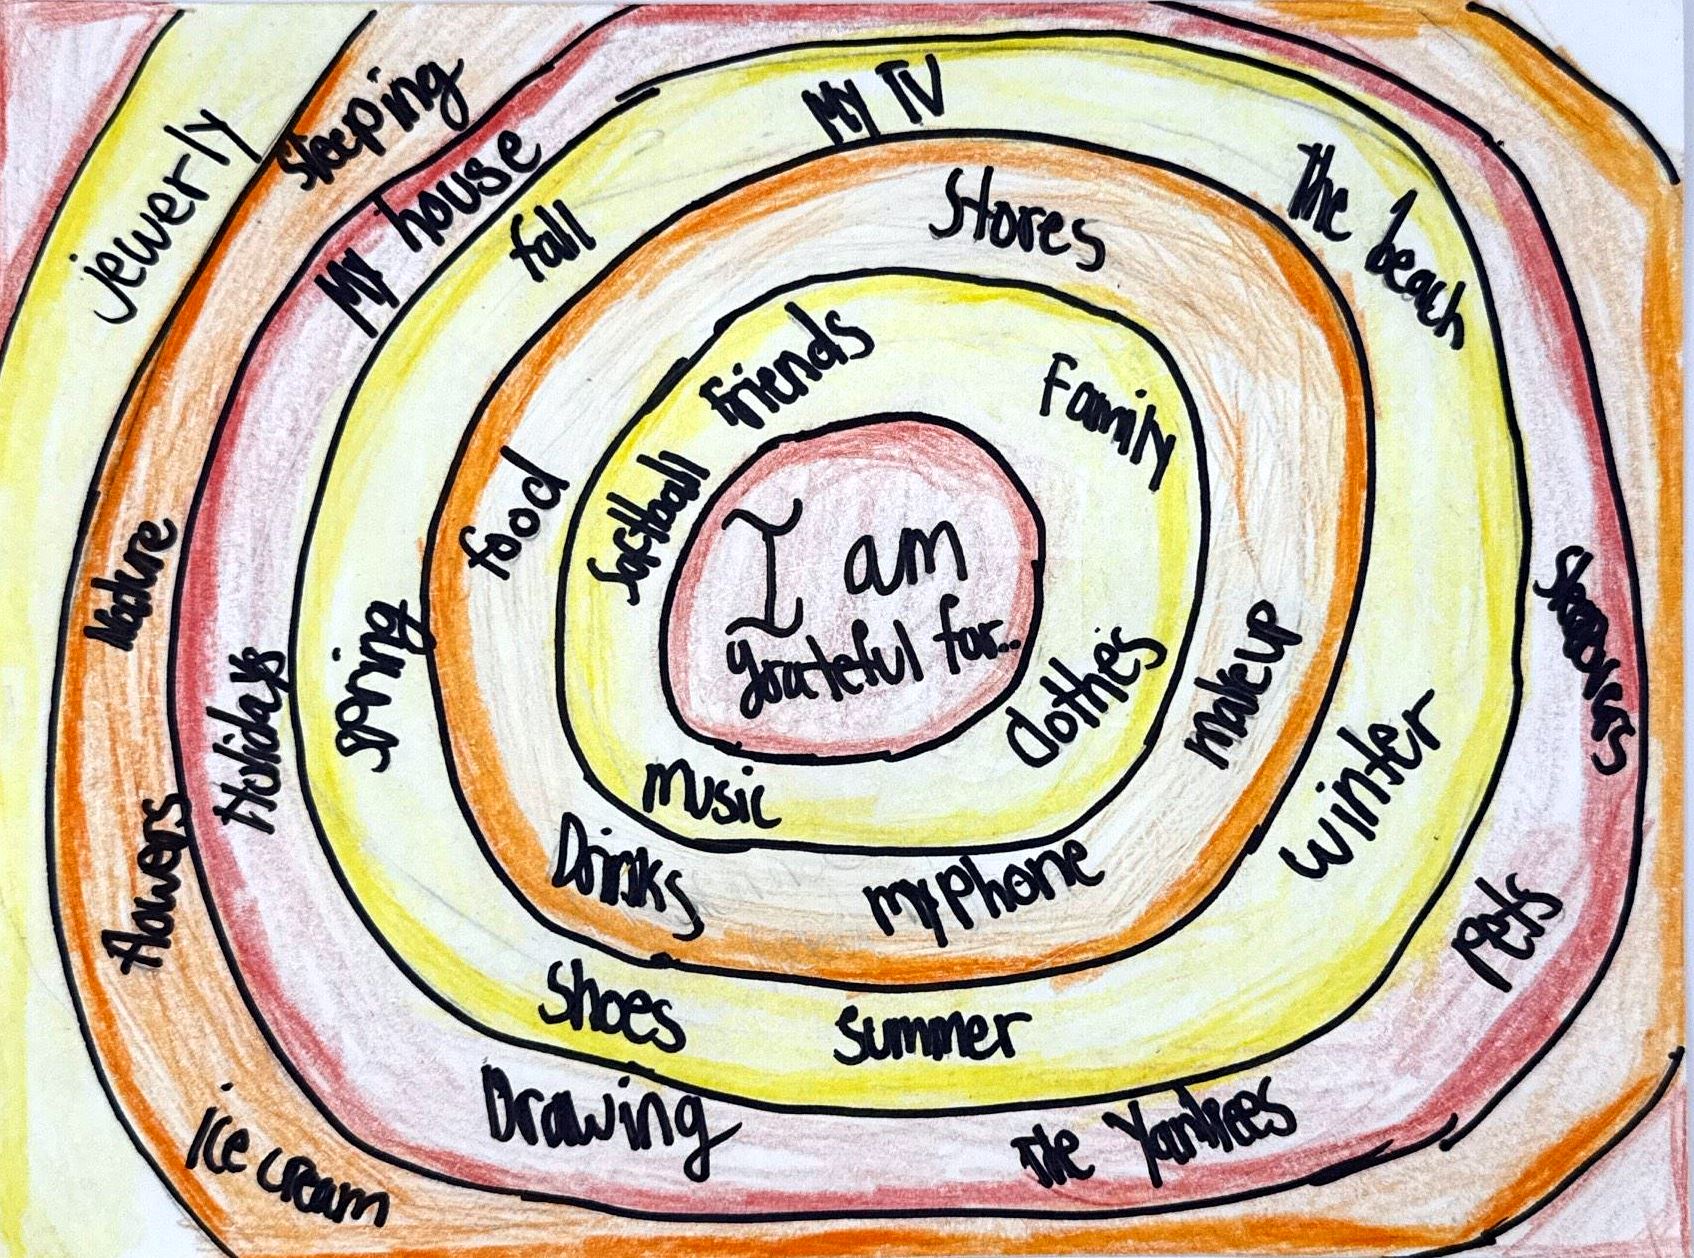 I am
grateful for...
Friends
Family
clothes
music
Softball
Stores
makeup
my phone
Drinks
food
My TV
The beach
winter
summer
Shoes
spring
fall
My house
Pets
The Yankees
Drawing
Holidays
sleeping
Nature
flowers
ice cream
jewerly